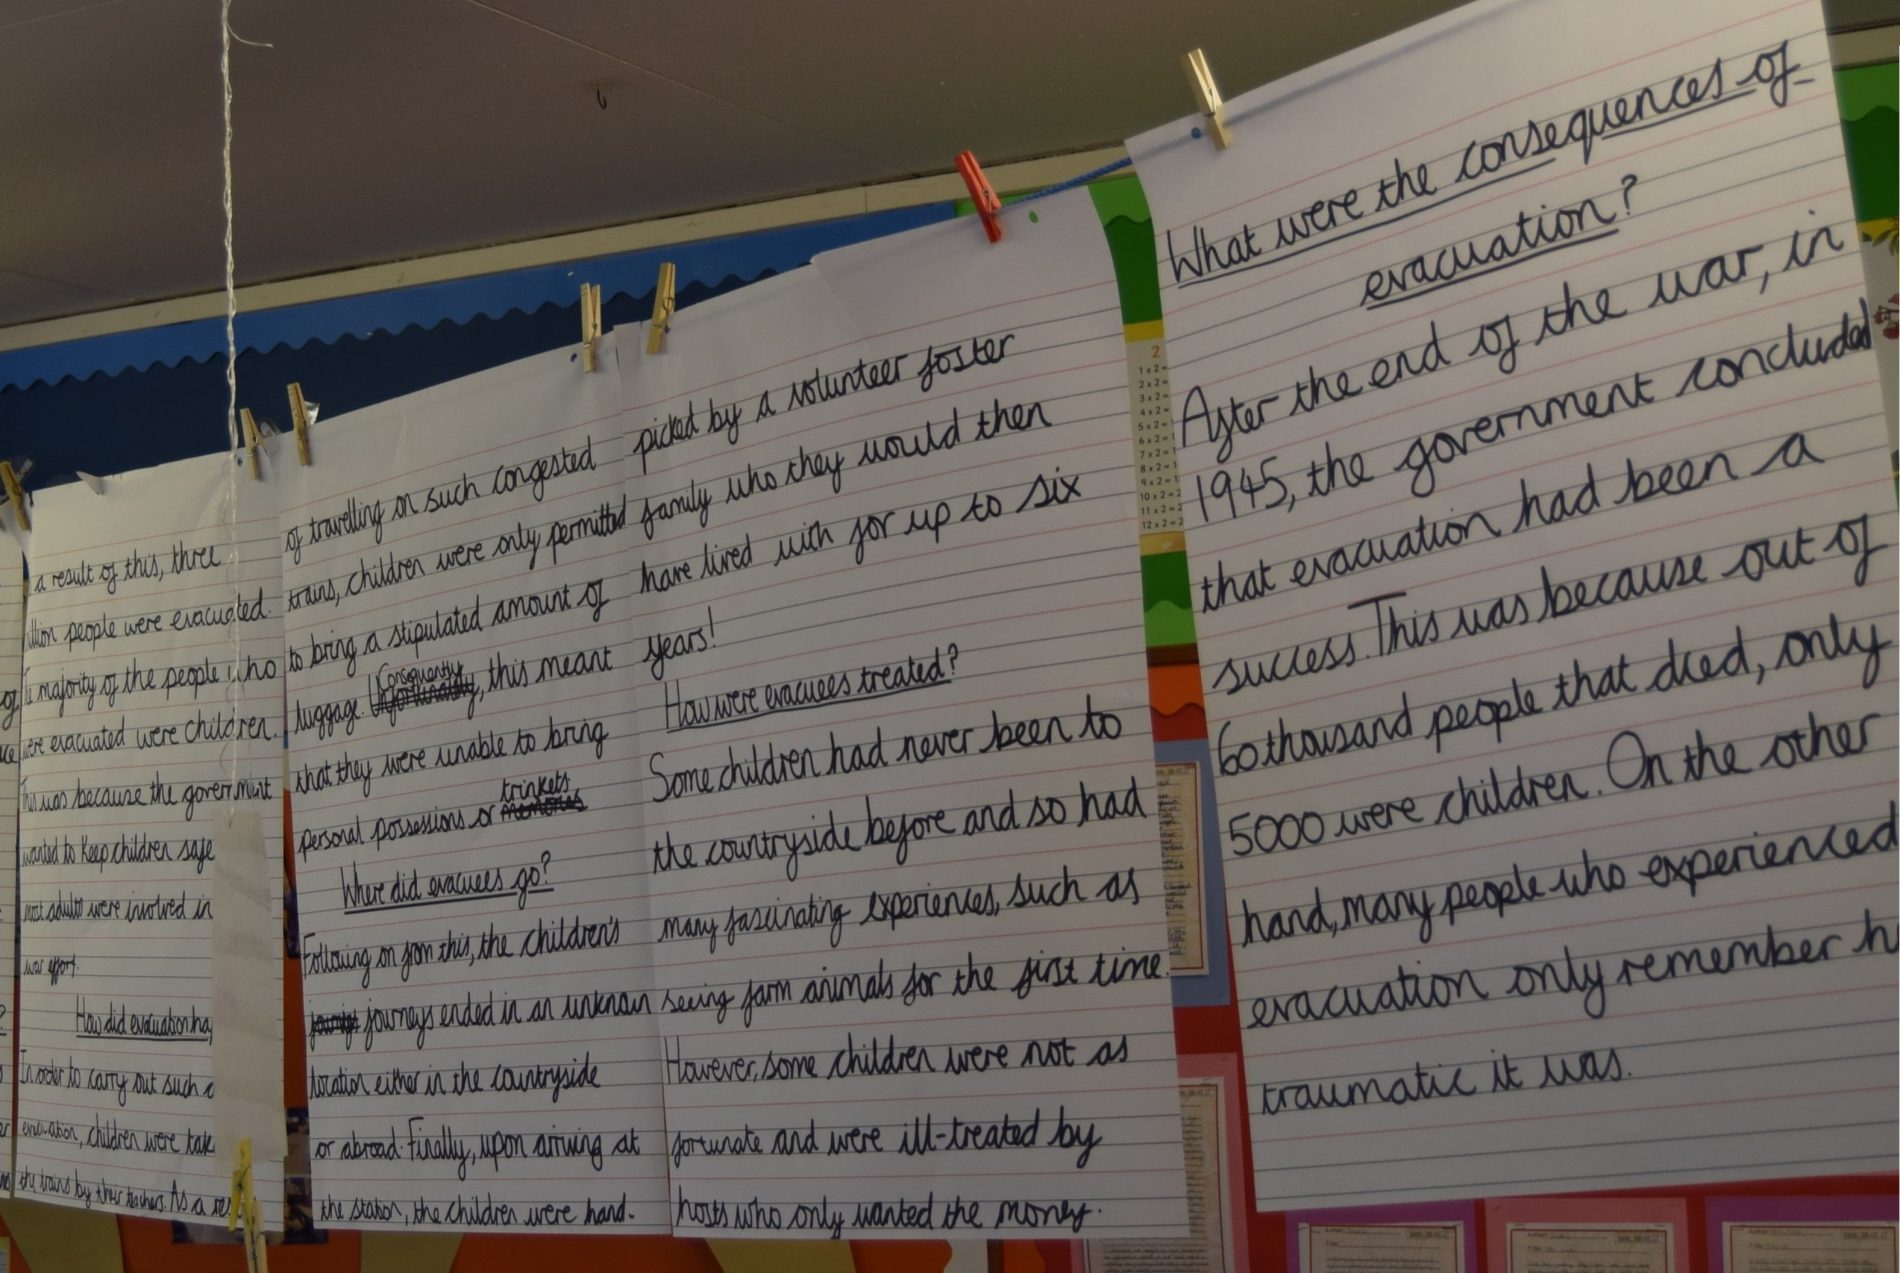 a result of this, three
people were evacuated.
majority of the people who
were evacuated were children.
This was because the government
wanted to keep children safe
most adults were involved in
war effort.
How did evacuation
In order to carry out such a
evacuation, children were
the trains by their teachers. As a
of travelling on such congested
trains, children were only permitted
to bring a stipulated amount of
Consequently
luggage. , this meant
that they were unable to bring
trinkets
personal possessions or memories
Where did evacuees go?
Following on from this, the children's
journeys ended in an unknown
location either in the countryside
or abroad. Finally, upon arriving at
the station, the children were hand-
picked by a volunteer foster
family who they would then
have lived with for up to six
years!
How were evacuees treated?
Some children had never been to
the countryside before and so had
many fascinating experiences, such as
seeing farm animals for the first time.
However, some children were not as
fortunate and were ill-treated by
hosts who only wanted the money.
2
1 x 2 =
2 x 2 =
3 x 2 =
4 x 2 =
5 x 2 =
6 x 2 =
7 x 2 =
8 x 2 =
9 x 2 =
10 x 2 =
11 x 2 =
12 x 2 =
What were the consequences of
evacuation?
After the end of the war, in
1945, the government concluded
that evacuation had been a
success. This was because out of
60 thousand people that died, only
5000 were children. On the other
hand, many people who experienced
evacuation only remember h
traumatic it was.